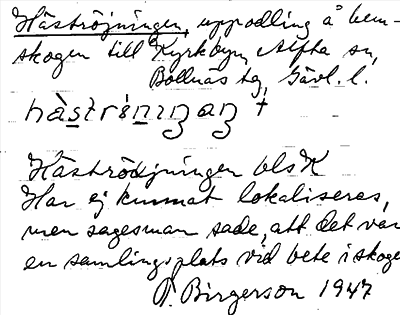 Häströjningen, uppodling å hem-
skogen till Kyrkbyn, Alfta sn,
Bollnäs tg, Gävl. l.
hàstrǿniŋaŋ †
Häströdjningen bls K
Har ej kunnat lokaliseras,
men sagesman sade, att det var
en samlingsplats vid bete i skoge
T. Birgerson 1947